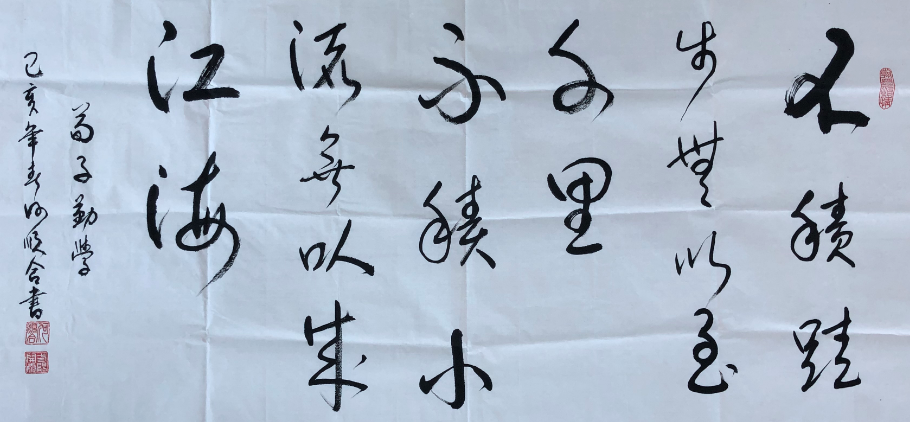 不積跬
步無以至
千里
不積小
流無以成
江海
荀子勸學
己亥年春何順合書